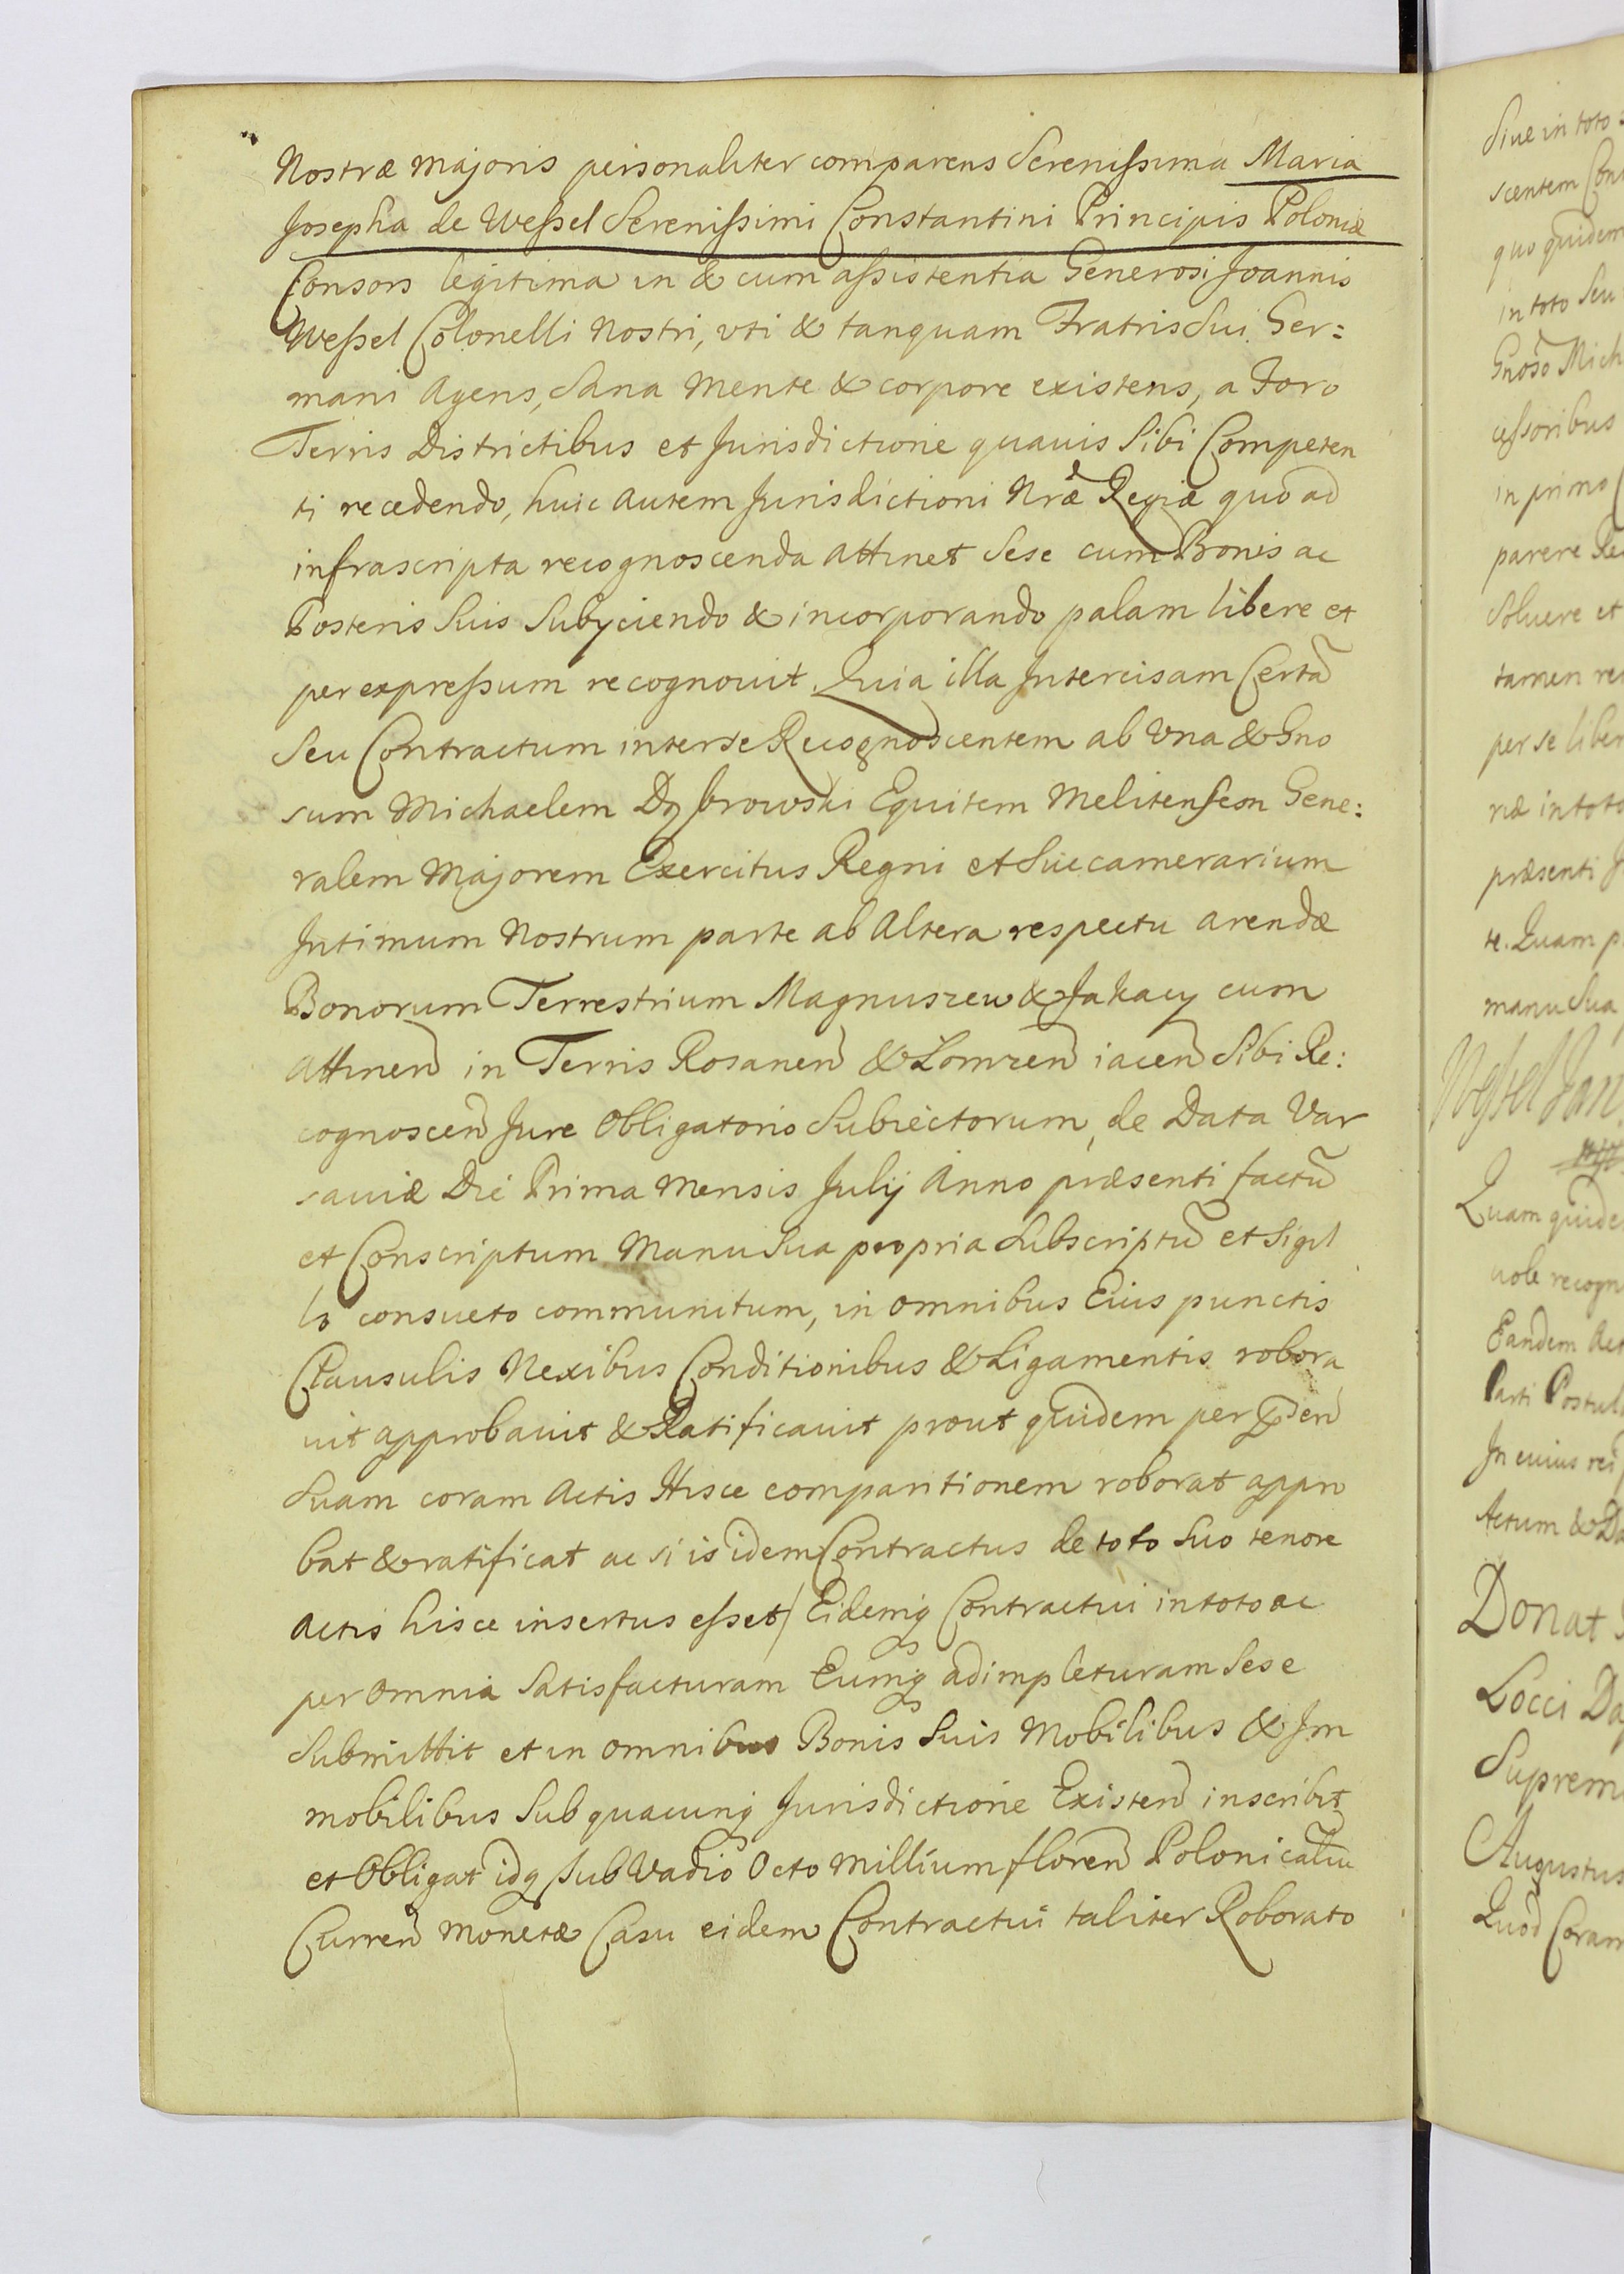 Nostræ Majoris personaliter comparens Serenissima Maria
Josepha de Wessel Serenissimi Constantini Principis Poloniæ
Consors legitima in & cum assistentia Generosi Joannis
Wessel Colonelli Nostri, vti & tanquam Fratris Sui Ger=
mani Agens, Sana Mente & corpore existens, a Foro
Terris Districtibus et Jurisdictione quauis Sibi Competen
ti recedendo, huic autem Jurisdictioni Nræ Regiæ quo ad
infrascripta recognoscenda attinet Sese cum Bonis ac
Posteris Suis Subyciendo & incorporando palam libere et
per expressum recognouit. Quia illa Intercisam Certā
Seu Contractum inter se Recognoscentem ab Vna & Gno
sum Michaelem Dąbrowski Equitem Melitensem Gene:
ralem Majorem Exercitus Regni et Succamerarium
Intimum Nostrum parte ab Altera respectu arendæ
Bonorum Terrestrium Magnuszew & Jakacy cum
Attinen in Terris Rosanen & Lomzen iacen Sibi Re:
cognoscen Jure Obligatorio Subiectorum, de Data Var
sauiæ Die Prima Mensis Julij Anno præsenti factū
et Conscriptum Manu Sua propria Subscriptū et Sigil
lo consueto communitum, in omnibus Eius punctis
Clausulis Nexibus Conditionibus & Ligamentis robora
uit approbauit & Ratificauit prout quidem per pñen
Suam coram Actis Hisce comparitionem roborat appro
bat & ratificat ac si is idem Contractus de toto Suo tenore
Actis hisce insertus esset / Eidemq Contractui in toto ac
per omnia Satisfacturam Eumq adimpleturam Sese
Submittit et in omnibus Bonis Suis Mobilibus & Im
mobilibus Sub quacunq Jurisdictione Existen inscribit
et Obligat idq sub Vadio Octo Millium floren Polonicaliu
Curren Monetæ Casu eidem Contractui taliter Roborato
Siue in toto
scentem
quo quidem
in toto Seu
Gnoso Mich
cessoribus
in primo
parere
Soluere et
tamen
per se liber
riæ in toto
præsenti
te. Quam
manu Sua
Wessel Jan
Quam quide
uole recogn
Eandem
Parti Postul
In cuius rei
Actum & Da
Donat
Locci
Suprem
Augustus
Quod Coram